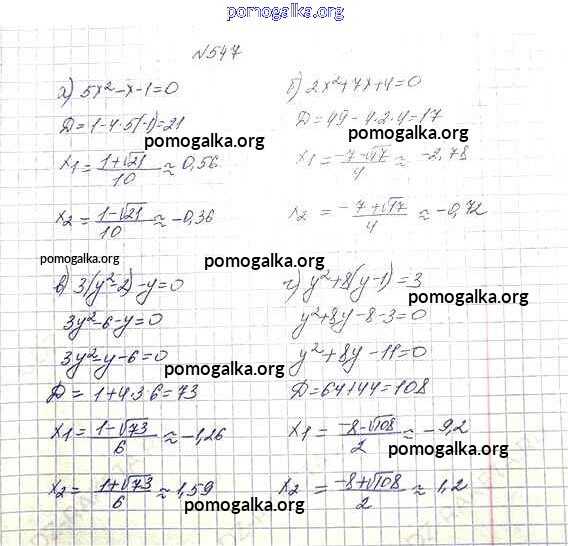 pomogalka.org
№547
а) 5x²-x-1=0
D=1-4·5(-1)=21
pomogalka.org
x₁=(1+√21)/10≈0,56
x₂=(1-√21)/10≈-0,36
б) 2x²+7x+4=0
D=49-4·2·4=17
pomogalka.org
x₁=(-7-√17)/4≈-2,78
x₂=(-7+√17)/4≈-0,72
pomogalka.org
pomogalka.org
в) 3(y²-2)-y=0
3y²-6-y=0
3y²-y-6=0
pomogalka.org
D=1+4·3·6=73
x₁=(1-√73)/6≈-1,26
x₂=(1+√73)/6≈1,59
pomogalka.org
г) y²+8(y-1)=3
pomogalka.org
y²+8y-8-3=0
y²+8y-11=0
D=64+44=108
x₁=(-8-√108)/2≈-9,2
pomogalka.org
x₂=(-8+√108)/2≈1,2